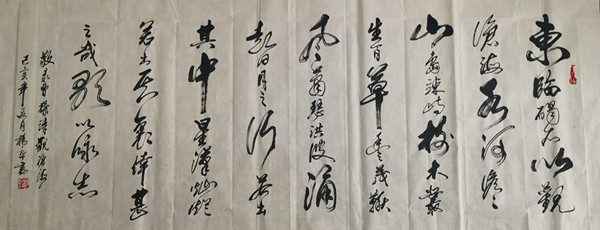 東臨碣石以觀
滄海水何澹々
山島竦峙樹木叢
生百草豐茂秋
風蕭瑟洪波涌
起日月之行若出
其中星漢燦爛
若出其裏幸甚
至哉歌以咏志
敬录曹操詩觀滄海
己亥年月楊書